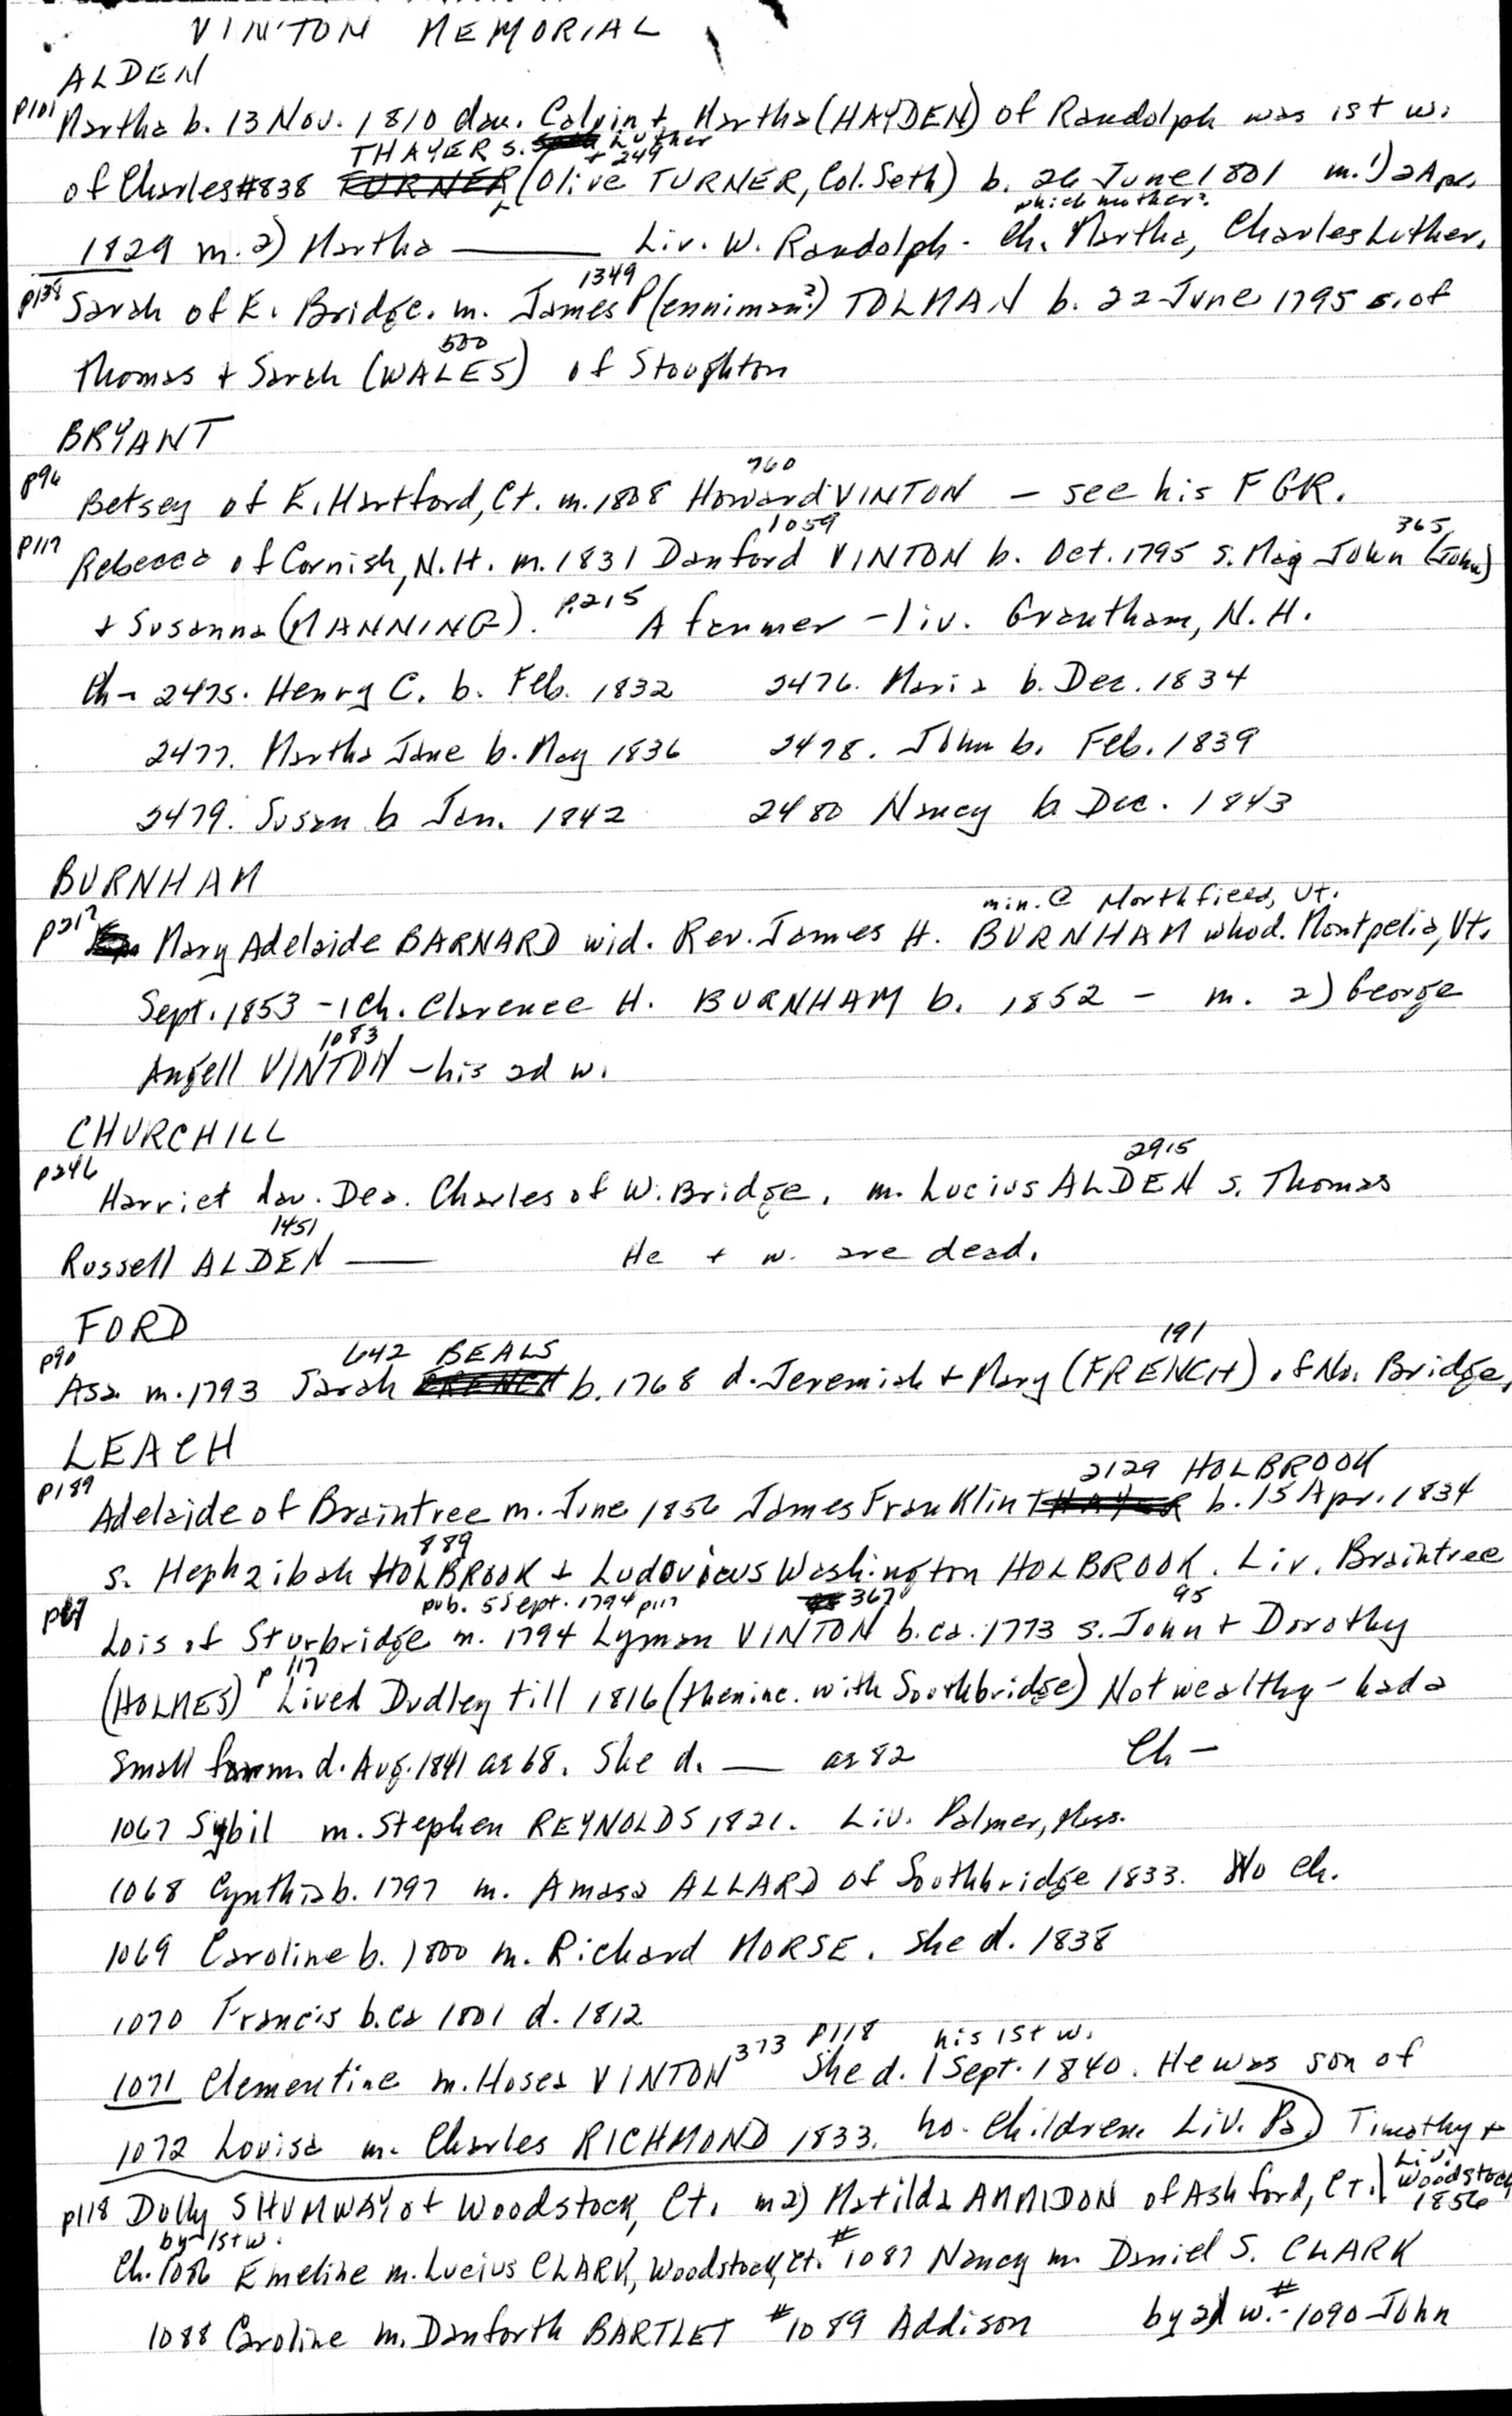 VINTON MEMORIAL
ALDEN
p101 Martha b. 13 Nov. 1810 dau. Calvin + Martha (HAYDEN) of Randolph was 1st w.
THAYER s. Luther + 249
of Charles #838 TURNER (Olive TURNER, Col. Seth) b. 26 June 1801 m. 1) 2 Apr.
which mother?
1829 m. 2) Martha ——— Liv. W. Randolph - Ch. Martha, Charles Luther.
1349
p138 Sarah of E. Bridge. m. James P(enniman?) TOLMAN b. 22 June 1795 s. of
500
Thomas + Sarah (WALES) of Stoughton
BRYANT
760
p96 Betsey of E. Hartford, Ct. m. 1808 Howard VINTON — see his FGR.
1059 365
p117 Rebecca of Cornish, N.H. m. 1831 Danford VINTON b. Oct. 1795 s. Maj John (John)
+ Susanna (MANNING). p.215 A farmer - liv. Grantham, N.H.
Ch - 2475. Henry C. b. Feb. 1832 2476. Maria b. Dec. 1834
2477. Martha Jane b. May 1836 2478. John b. Feb. 1839
2479. Susan b Jan. 1842 2480 Nancy b Dec. 1843
BURNHAM
min. @ Northfield, Vt.
p217 Mary Adelaide BARNARD wid. Rev. James H. BURNHAM who d. Montpelia, Vt.
Sept. 1853 - 1 Ch. Clarence H. BURNHAM b. 1852 - m. 2) George
1083
Angell VINTON - his 2d w.
CHURCHILL
2915
p246 Harriet dau. Dea. Charles of W. Bridge. m. Lucius ALDEN s. Thomas
1451
Russell ALDEN —— He + w. are dead.
FORD
642 BEALS 191
p90 Asa m. 1793 Sarah FRENCH b. 1768 d. Jeremiah + Mary (FRENCH) of No. Bridge.
LEACH
2129 HOLBROOK
p189 Adelaide of Braintree m. June 1856 James Franklin THAYER b. 15 Apr. 1834
889
s. Hephzibah HOLBROOK + Ludovicus Washington HOLBROOK. Liv. Braintree
pub. 5 Sept. 1794 p117 367 95
p67 Lois of Sturbridge m. 1794 Lyman VINTON b. ca. 1773 s. John + Dorothy
(HOLMES) p 117 Lived Dudley till 1816 (then inc. with Southbridge) Not wealthy - had a
small farm. d. Aug. 1841 ae 68. She d. — ae 82 Ch -
1067 Sybil m. Stephen REYNOLDS 1821. Liv. Palmer, Mass.
1068 Cynthia b. 1797 m. Amasa ALLARD of Southbridge 1833. No Ch.
1069 Caroline b. 1800 m. Richard MORSE. She d. 1838
1070 Francis b. ca 1801 d. 1812
373 p118 his 1st w.
1071 Clementine m. Moses VINTON She d. 1 Sept. 1840. He was son of
1072 Louisa m. Charles RICHMOND 1833. no. Children. Liv. Pa) Timothy +
p118 Dolly SHUMWAY of Woodstock, Ct. m 2) Matilda AMMIDON of Ashford, Ct. | Liv. Woodstock 1856
by 1st w.
Ch. 1086 Emeline m. Lucius CLARK, Woodstock, Ct. #1087 Nancy m. Daniel S. CLARK
1088 Caroline m. Danforth BARTLET #1089 Addison by 2d w. - #1090 John